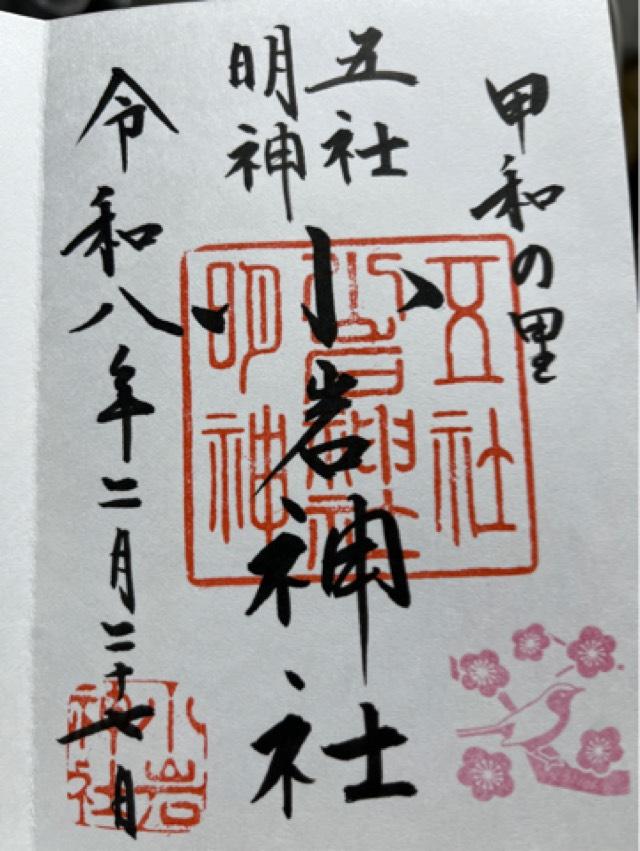 甲和の里
五社
明神
小岩神社
令和八年二月二十七日
五社
小岩神社
明神
小岩
神社